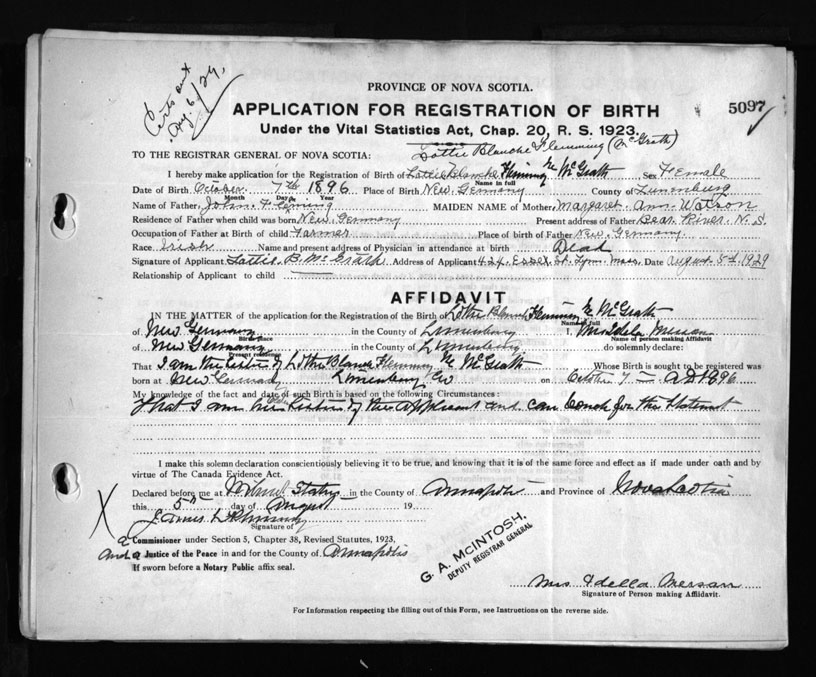 Certs out
Aug. 6/29,
PROVINCE OF NOVA SCOTIA.
APPLICATION FOR REGISTRATION OF BIRTH
5097
Under the Vital Statistics Act, Chap. 20, R. S. 1923.
Lottie Blanche Flemming (McGrath)
TO THE REGISTRAR GENERAL OF NOVA SCOTIA:
I hereby make application for the Registration of Birth of Lottie Blanche Flemming McGrath Sex Female
Name in full
Date of Birth October 7th 1896 Place of Birth New Germany County of Lunenburg
Month Day Year
Name of Father, John Fleming MAIDEN NAME of Mother, Margaret Ann Watson
Residence of Father when child was born New Germany Present address of Father Bear River, N. S.
Occupation of Father at Birth of child Farmer Place of birth of Father New Germany
Race Irish Name and present address of Physician in attendance at birth Dead
Signature of Applicant Lottie B. McGrath Address of Applicant 424 Essex St. Lynn Mass. Date August 5th 1929
Relationship of Applicant to child
AFFIDAVIT
IN THE MATTER of the application for the Registration of the Birth of Lottie Blanch Flemming McGrath
Name in full
of New Germany in the County of Lunenburg I, Mrs Idella
Birth place Name of person making Affidavit
of New Germany in the County of Lunenburg do solemnly declare:
Present residence
That I am the Sister of Lottie Blanch Flemming McGrath Whose Birth is sought to be registered was
born at New Germany Lunenburg Co on October 7 AD 1896
My knowledge of the fact and date of such Birth is based on the following Circumstances:
That I am her Sister of the applicant and can vouch for the statement
I make this solemn declaration conscientiously believing it to be true, and knowing that it is of the same force and effect as if made under oath and by
virtue of The Canada Evidence Act.
Declared before me at in the County of Annapolis and Province of Nova Scotia
this 5th day of August 19
James
Signature of
a Commissioner under Section 5, Chapter 38, Revised Statutes, 1923,
and a Justice of the Peace in and for the County of Annapolis
If sworn before a Notary Public affix seal.
G. A. McINTOSH,
DEPUTY REGISTRAR GENERAL
Mrs Idella
Signature of Person making Affidavit.
For Information respecting the filling out of this Form, see Instructions on the reverse side.